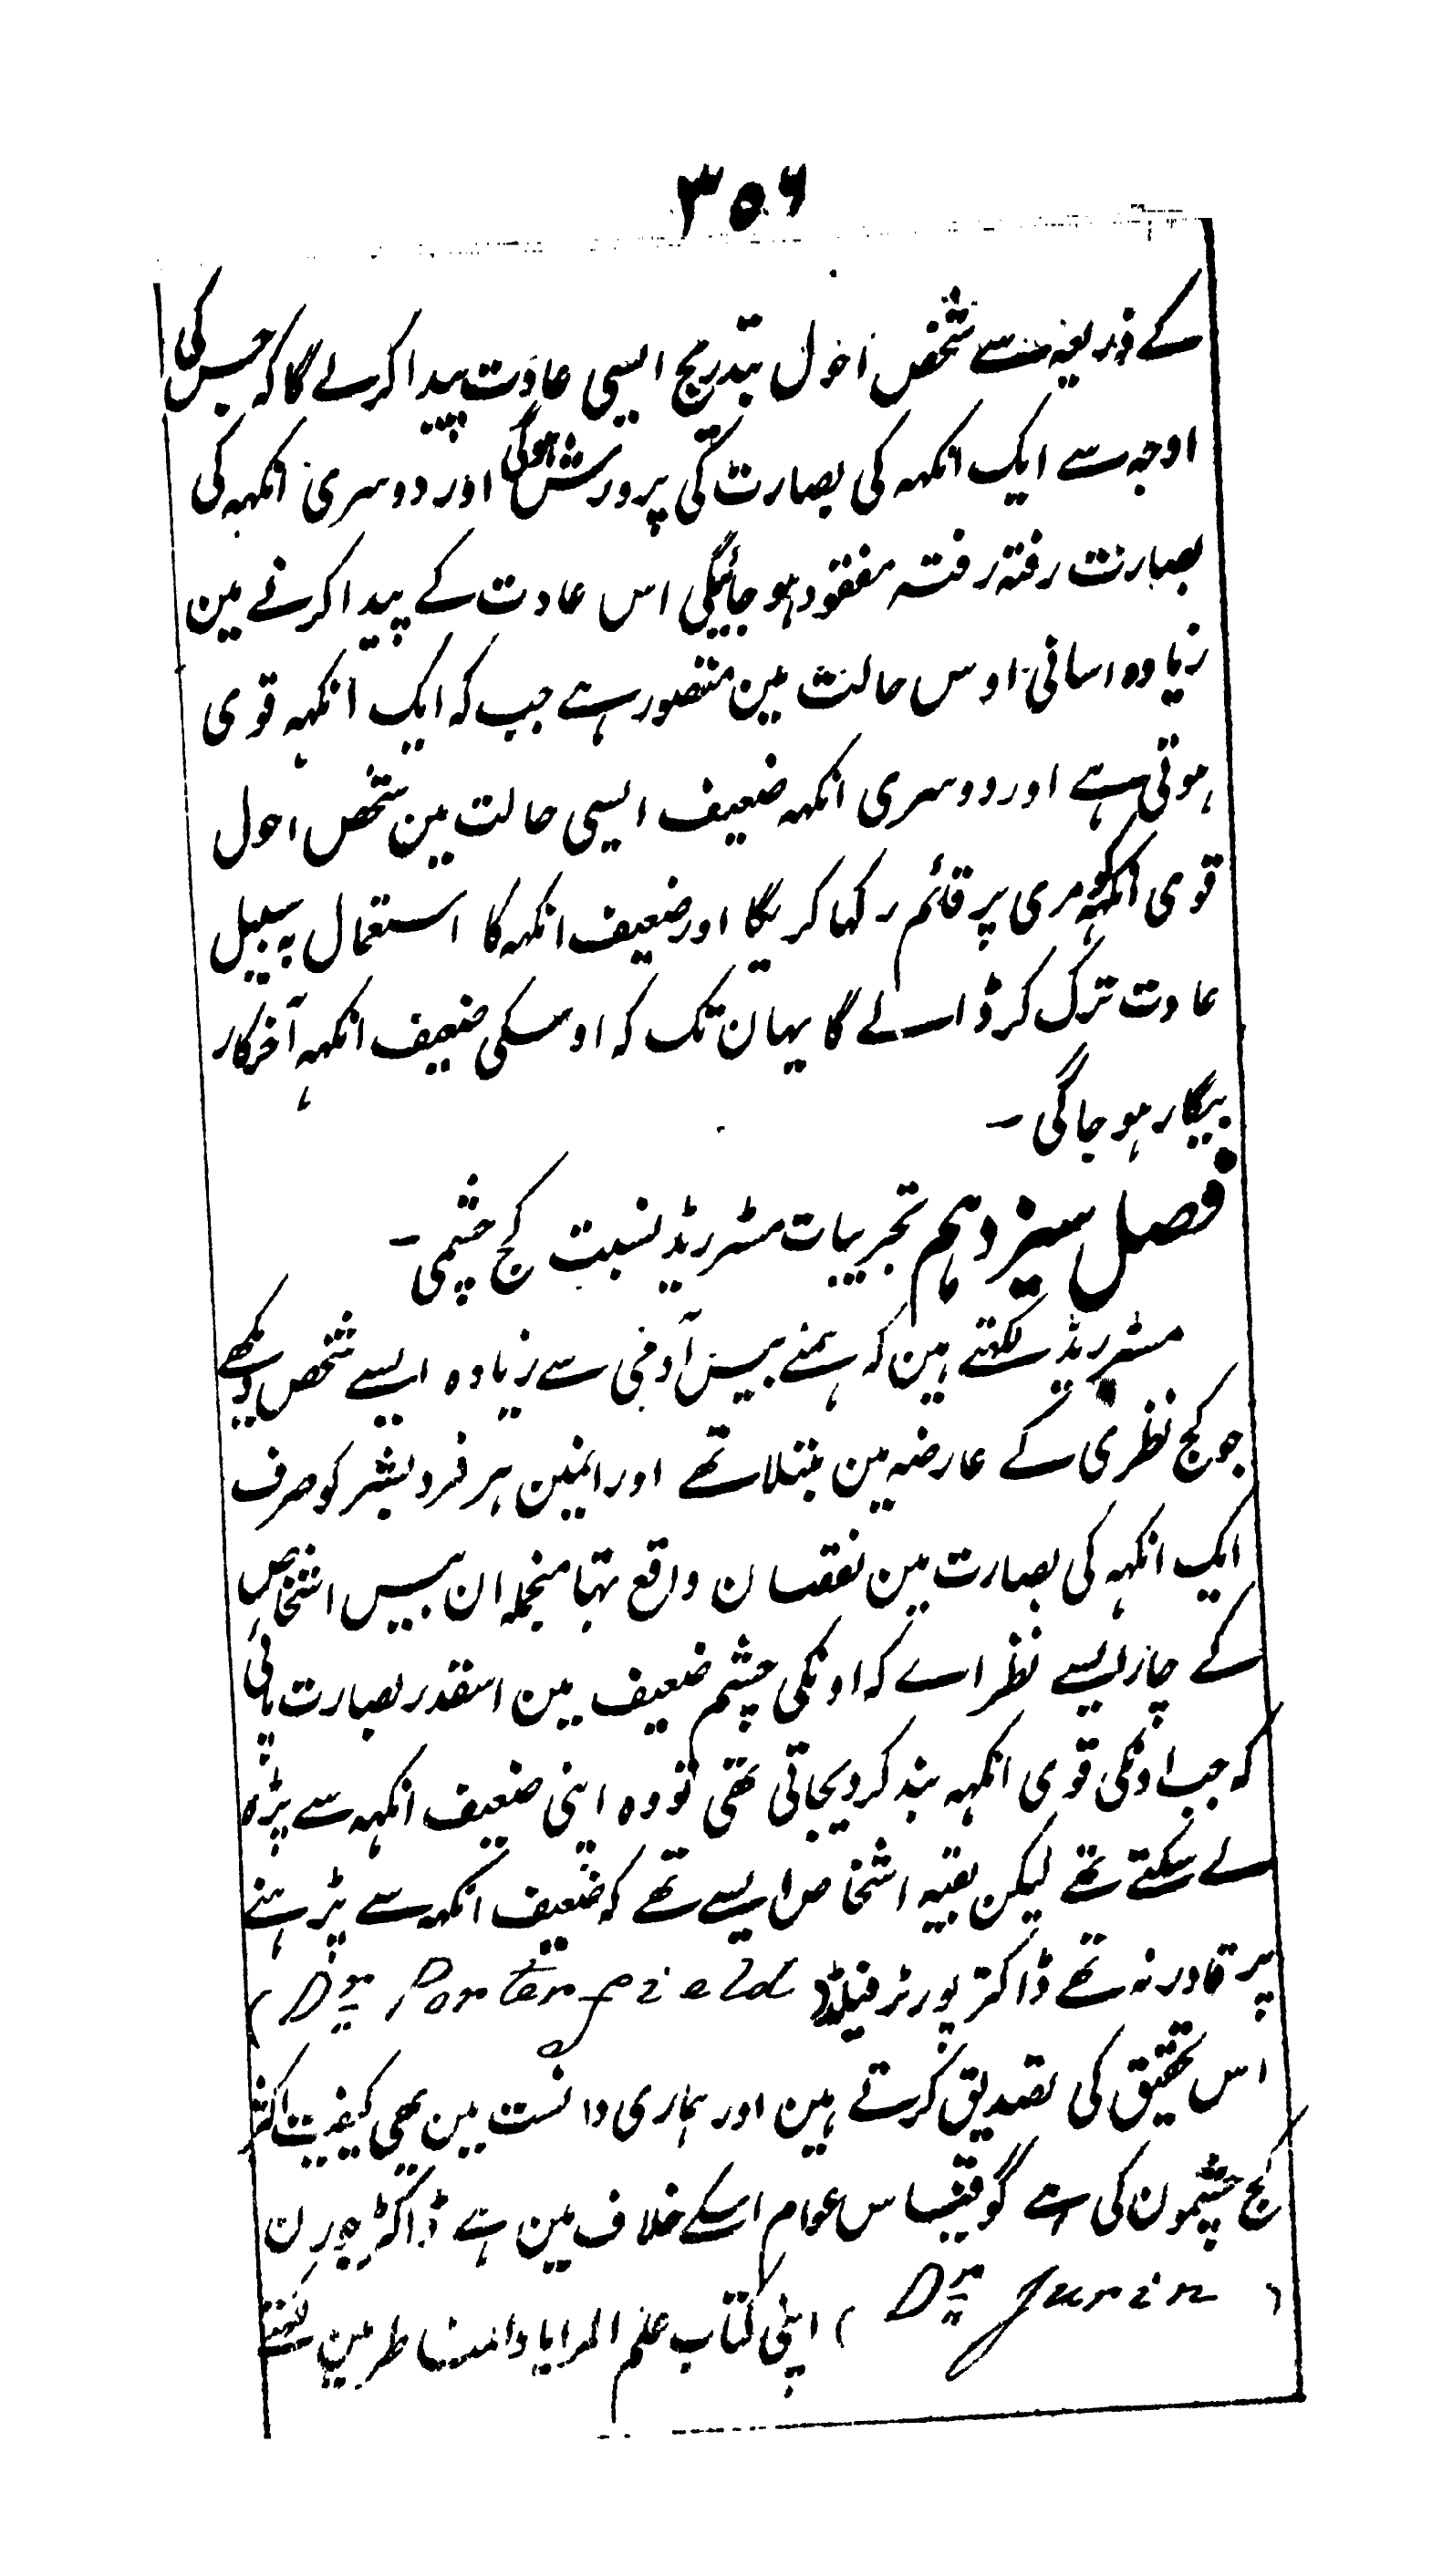 ۳۵۶
کے ذریعہ سے شخص احول بتدریج ایسی عادت پیدا کرلے گا کہ جس کی
وجہ سے ایک انکہہ کی بصارت کی پرورش ہوگی اور دوسری انکہہ کی
بصارت رفتہ رفتہ مفقود ہو جائیگی اس عادت کے پیدا کرنے مین
زیادہ اسانی اوس حالت مین متصور ہے جب کہ ایک انکہہ قوی
ہوتی ہے اور دوسری انکہہ ضعیف ایسی حالت مین شخص احول
قوی انکہہ کو مری پر قائم رکہا کریگا اور ضعیف انکہہ کا استعمال بہ سبیل
عادت ترک کر ڈالے گا یہان تک کہ اوسکی ضعیف انکہہ آخرکار
بیگار ہو جاگی ۔
فصل سیزدہم تجربیات مسٹر ریڈ نسبت کج چشمی ۔
مسٹر ریڈ لکہتے ہین کہ ہمنے بیس آدمی سے زیادہ ایسے شخص دیکہے
جو کج نظری کے عارضہ مین مبتلا تھے اور انمین ہر فرد بشر کو صرف
ایک انکہہ کی بصارت مین نقصان واقع تہا منجملہ ان بیس اشخاص
کے چار ایسے نظر اے کہ اونکی چشم ضعیف مین اسقدر بصارت پائی
کہ جب اونکی قوی انکہہ بند کر دیجاتی تھی تو وہ اپنی ضعیف انکہہ سے پڑہ
لے سکتے تھے لیکن بقیہ اشخاص ایسے تھے کہ ضعیف انکہہ سے پڑہنے
پر قادر نہ تھے ڈاکتر پورٹر فیلڈ ( Dr Porterfield )
اس تحقیق کی تصدیق کرتے ہین اور ہماری دانست مین بھی کیفیت اکثر
کج چشمون کی ہے گو قیاس عوام اسکے خلاف مین ہے ڈاکٹر جورن
( Dr Jurin ) اپنی کتاب علم المرایا والمناظر مین لکہتے